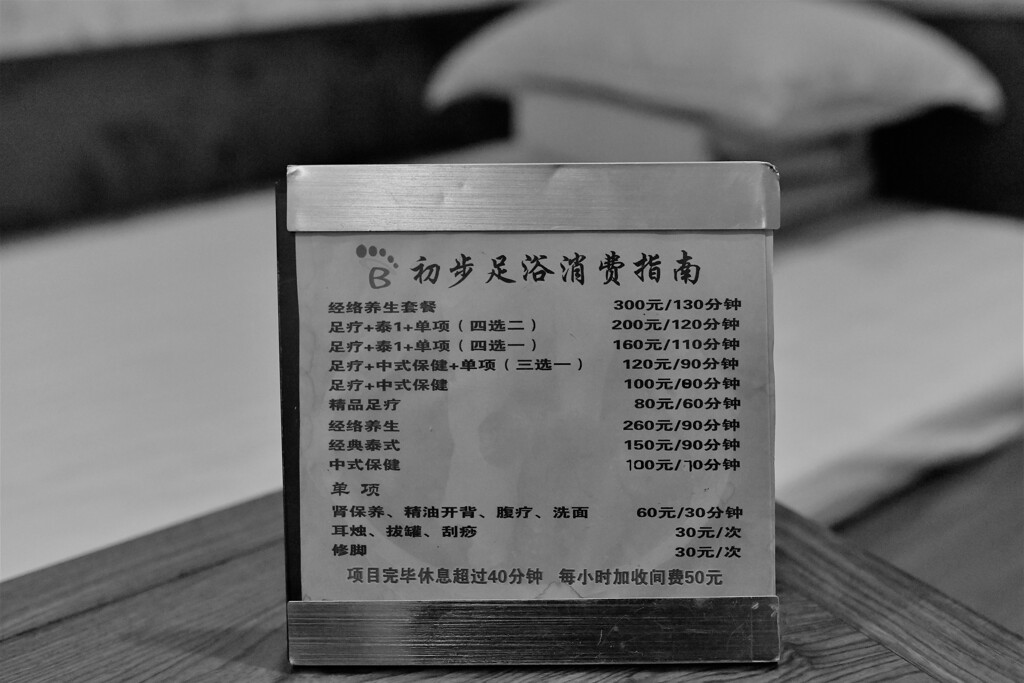 B 初步足浴消费指南
经络养生套餐 300元/130分钟
足疗+泰1+单项（四选二） 200元/120分钟
足疗+泰1+单项（四选一） 160元/110分钟
足疗+中式保健+单项（三选一） 120元/90分钟
足疗+中式保健 100元/80分钟
精品足疗 80元/60分钟
经络养生 260元/90分钟
经典泰式 150元/90分钟
中式保健 100元/70分钟
单 项
肾保养、精油开背、腹疗、洗面 60元/30分钟
耳烛、拔罐、刮痧 30元/次
修脚 30元/次
项目完毕休息超过40分钟 每小时加收间费50元